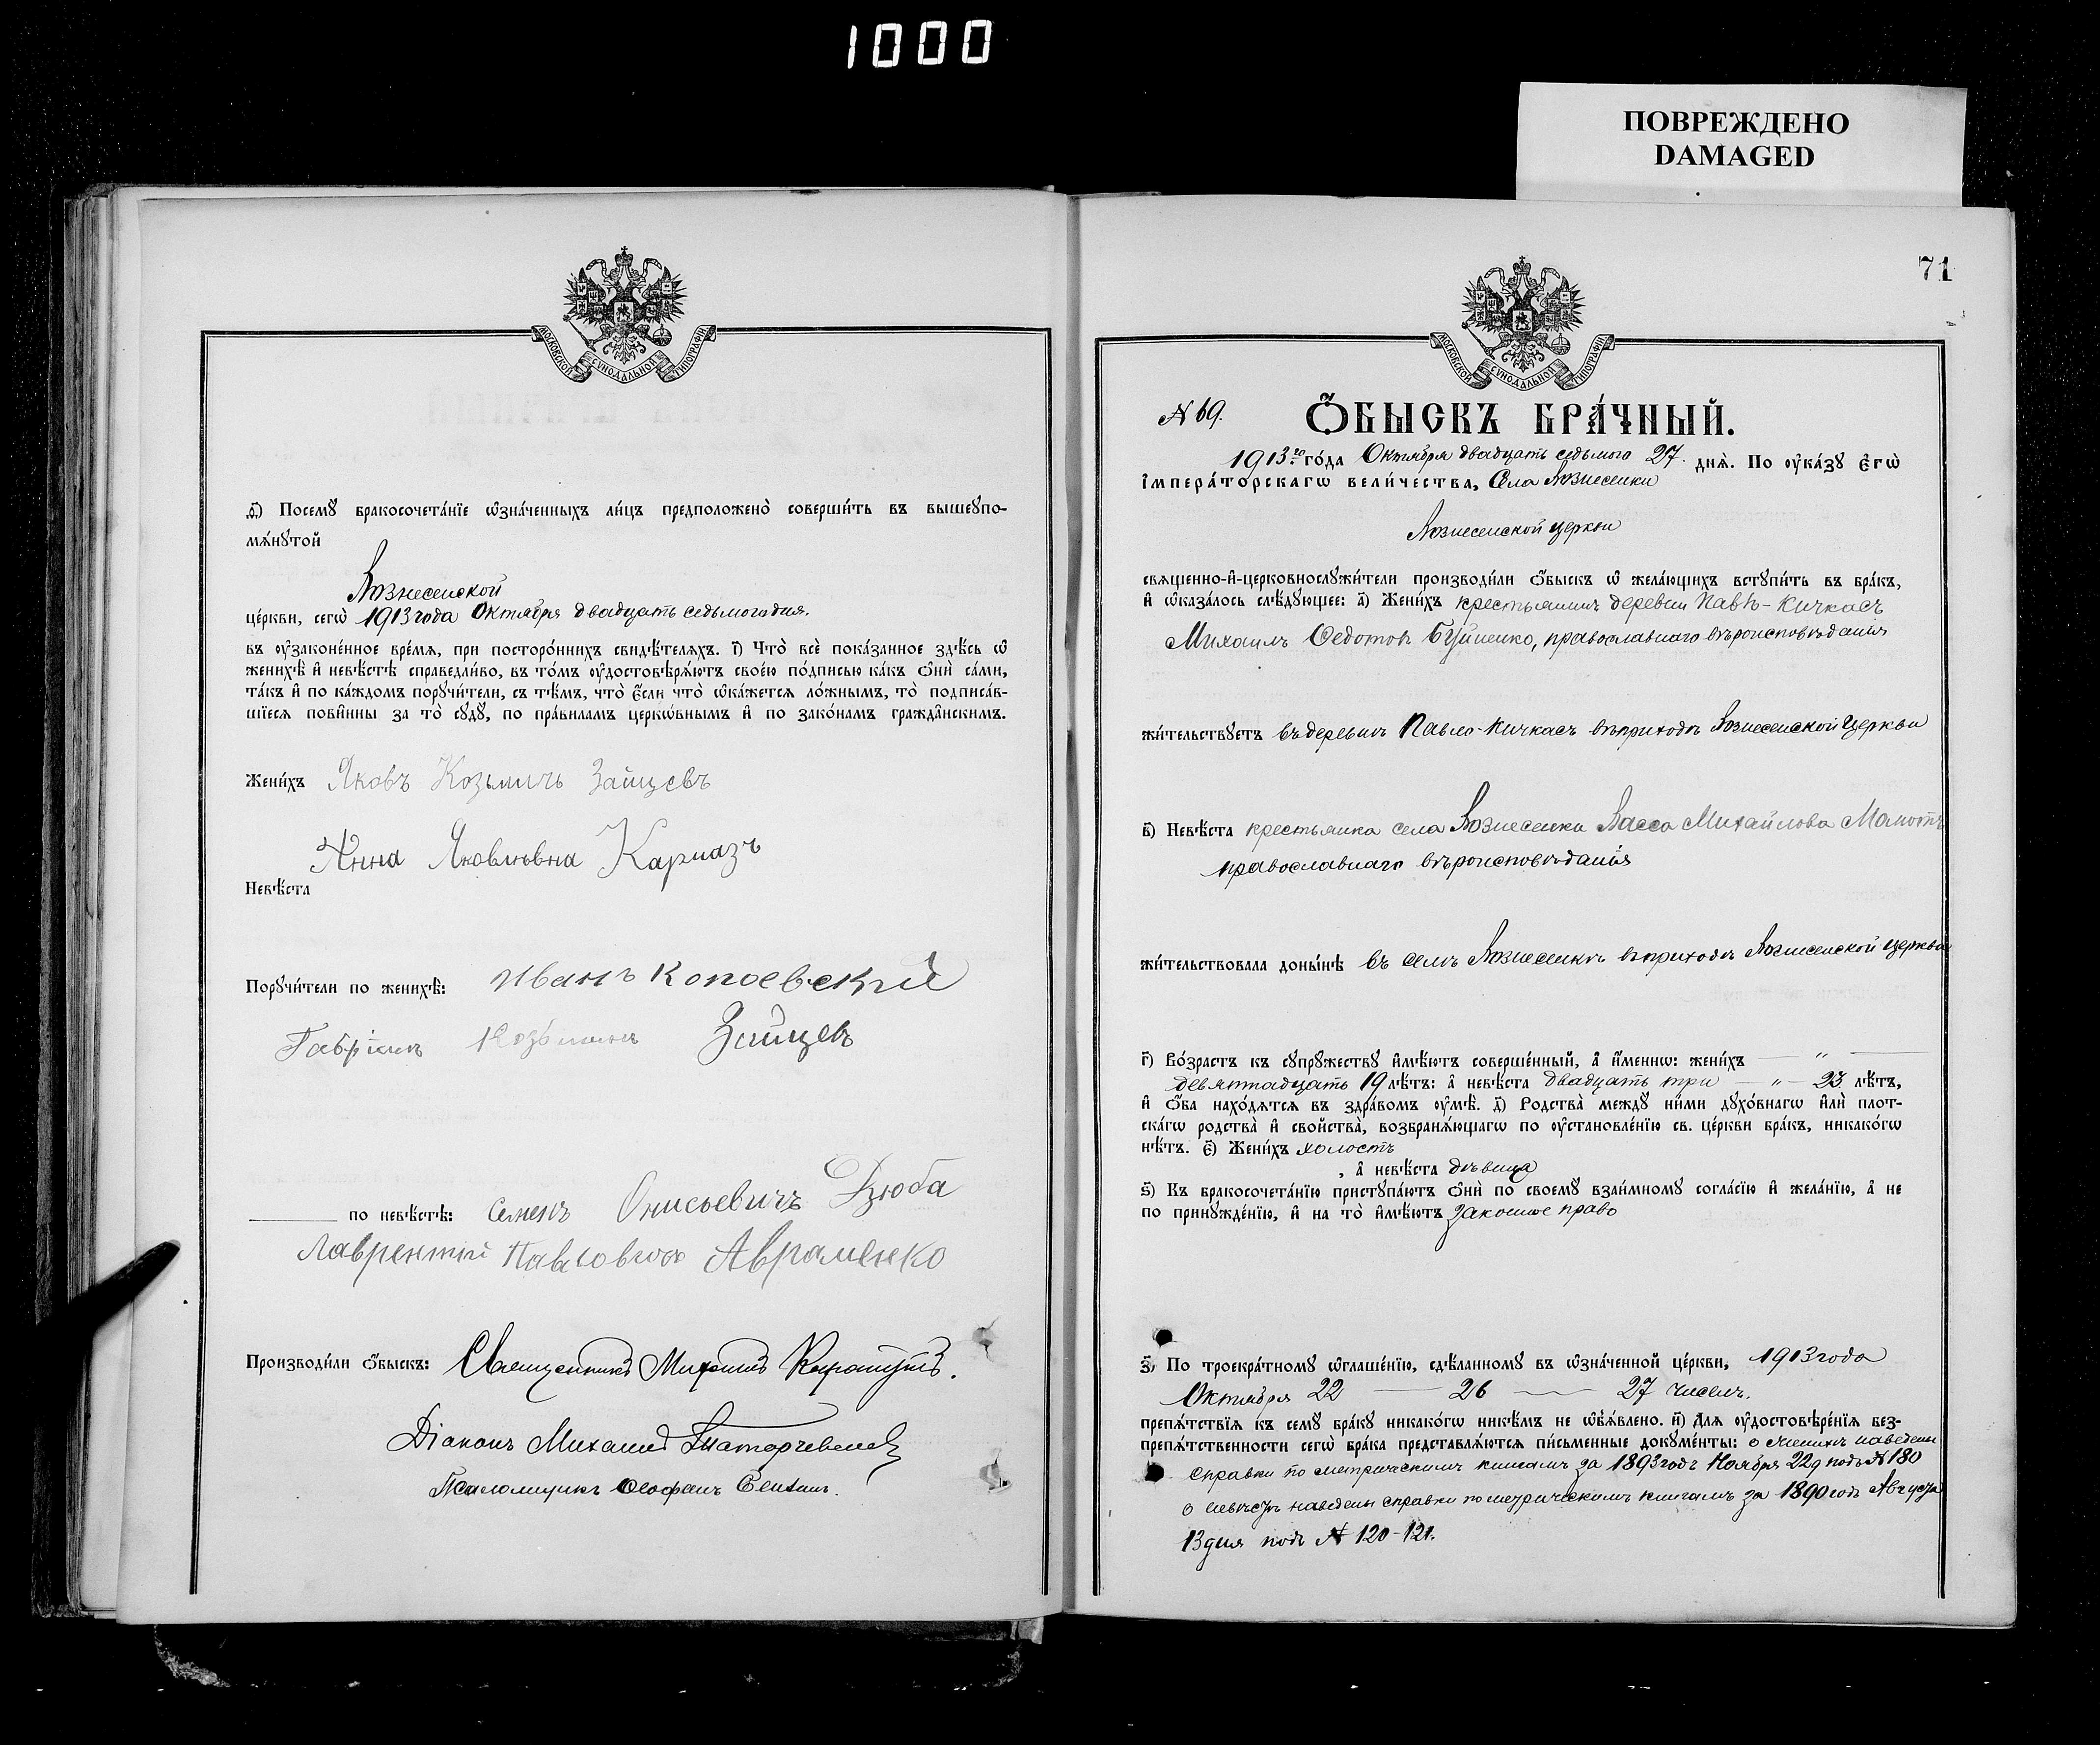 1000
ПОВРЕЖДЕНО
DAMAGED
МОСКОВСКОЙ СѴНОДАЛЬНОЙ ТИПОГРАФІИ
ѳ҃) Посемꙋ̀ бракосочета́нїе ѡ҆зна́ченныхъ ли́цъ предположено̀ соверши́ть въ вышеꙋпо-
мѧ́нꙋтой
Вознесенской
це́ркви, сегѡ̀ 1913 года Октября двадцать седьмого дня.
въ ᲂу҆законе́нное вре́мѧ, при посторо́ннихъ свидѣ́телѧхъ. і҃) Что̀ всѐ пока́занное здѣ́сь ѡ҆
женихѣ̀ и҆ невѣ́стѣ справедли́во, въ то́мъ ᲂу҆достовѣрѧ́ютъ свое́ю по́дписью ка́къ ѻ҆нѝ са́ми,
та́къ и҆ по ка́ждомъ порꙋчи́тели, съ тѣ́мъ, что̀ є҆́сли что̀ ѡ҆ка́жетсѧ ло́жнымъ, то̀ подписа́в-
шїесѧ пови́нны за то̀ сꙋдꙋ̀, по пра́виламъ церкѡ́внымъ и҆ по зако́намъ гражда́нскимъ.
Жени́хъ Яковъ Козьмичъ Зайцевъ
Анна Яковлѣвна Кармазъ
Невѣ́ста
Порꙋчи́тели по женихѣ̀: Иванъ Копоевский
Гавріилъ Зайцевъ
по невѣ́стѣ: Семенъ Онисьевичъ Дзюба
Лаврентий Павловичъ Авраменко
Производи́ли ѻ҆́быскъ: Священникъ Михаилъ
Діаконъ Михаилъ
Псаломщикъ Ѳеофанъ
71
МОСКОВСКОЙ СѴНОДАЛЬНОЙ ТИПОГРАФІИ
№ 69. Ѻ҆́БЫСКЪ БРА́ЧНЫЙ.
1913го го́да Октября двадцать седьмого 27 днѧ̀. По ᲂу҆ка́зꙋ є҆гѡ̀
і҆мпера́торскагѡ вели́чества, Села Вознесенки
Вознесенской церкви
свѧщенно-и҆-церковнослꙋжи́тели производи́ли ѻ҆́быскъ ѡ҆ жела́ющихъ встꙋпи́ть въ бра́къ,
и҆ ѡ҆каза́лось слѣ́дꙋющее: а҃) Жени́хъ крестьянинъ деревни Павло-Кичкасъ
Михаилъ Ѳедотовъ Буйненко, православнаго вѣроисповѣданія
жи́тельствꙋетъ въ деревнѣ Павло-Кичкасъ въ приходѣ Вознесенской церкви
в҃) Невѣ́ста крестьянка села Вознесенки Васса Михайлова
православнаго вѣроисповѣданія
жи́тельствовала доны́нѣ въ селѣ Вознесенкѣ въ приходѣ Вознесенской церкви
г҃) Во́зрастъ къ сꙋпрꙋ́жествꙋ и҆мѣ́ютъ соверше́нный, а҆ и҆́меннѡ: жени́хъ — „ —
девятнадцать 19 лѣ́тъ: а҆ невѣ́ста двадцать три — „ — 23 лѣ́тъ,
и҆ ѻ҆́ба нахо́дѧтсѧ въ здра́вомъ ᲂу҆мѣ̀. д҃) Родства̀ междꙋ̀ ни́ми дꙋхо́внагѡ и҆лѝ плот-
ска́гѡ родства̀ и҆ сво́йства, возбранѧ́ющагѡ по ᲂу҆становле́нїю св. це́ркви бра́къ, никако́гѡ
нѣ́тъ. є҃) Жени́хъ холостъ
, а҆ невѣ́ста дѣвица
ѕ҃) Къ бракосочета́нїю пристꙋпа́ютъ ѻ҆нѝ по своемꙋ̀ взаи́мномꙋ согла́сїю и҆ жела́нїю, а҆ не
по принꙋжде́нїю, и҆ на то̀ и҆мѣ́ютъ законное право
з҃) По троекра́тномꙋ ѡ҆глаше́нїю, сдѣ́ланномꙋ въ ѡ҆зна́ченной це́ркви, 1913 года
Октября 22 — 26 — 27 чиселъ.
препѧ́тствїѧ къ семꙋ̀ бра́кꙋ никако́гѡ никѣ́мъ не ѡ҆б̾ѧ́влено. и҃) Длѧ ᲂу҆достовѣре́нїѧ без-
препѧ́тственности сегѡ̀ бра́ка представлѧ́ютсѧ пи́сьменные докꙋме́нты: о женихѣ наведены
справки по метрическимъ книгамъ за 1893 годъ Ноября 22 подъ № 180
о невѣстѣ наведены справки по метрическимъ книгамъ за 1890 годъ Августа
13 дня подъ № 120-121.